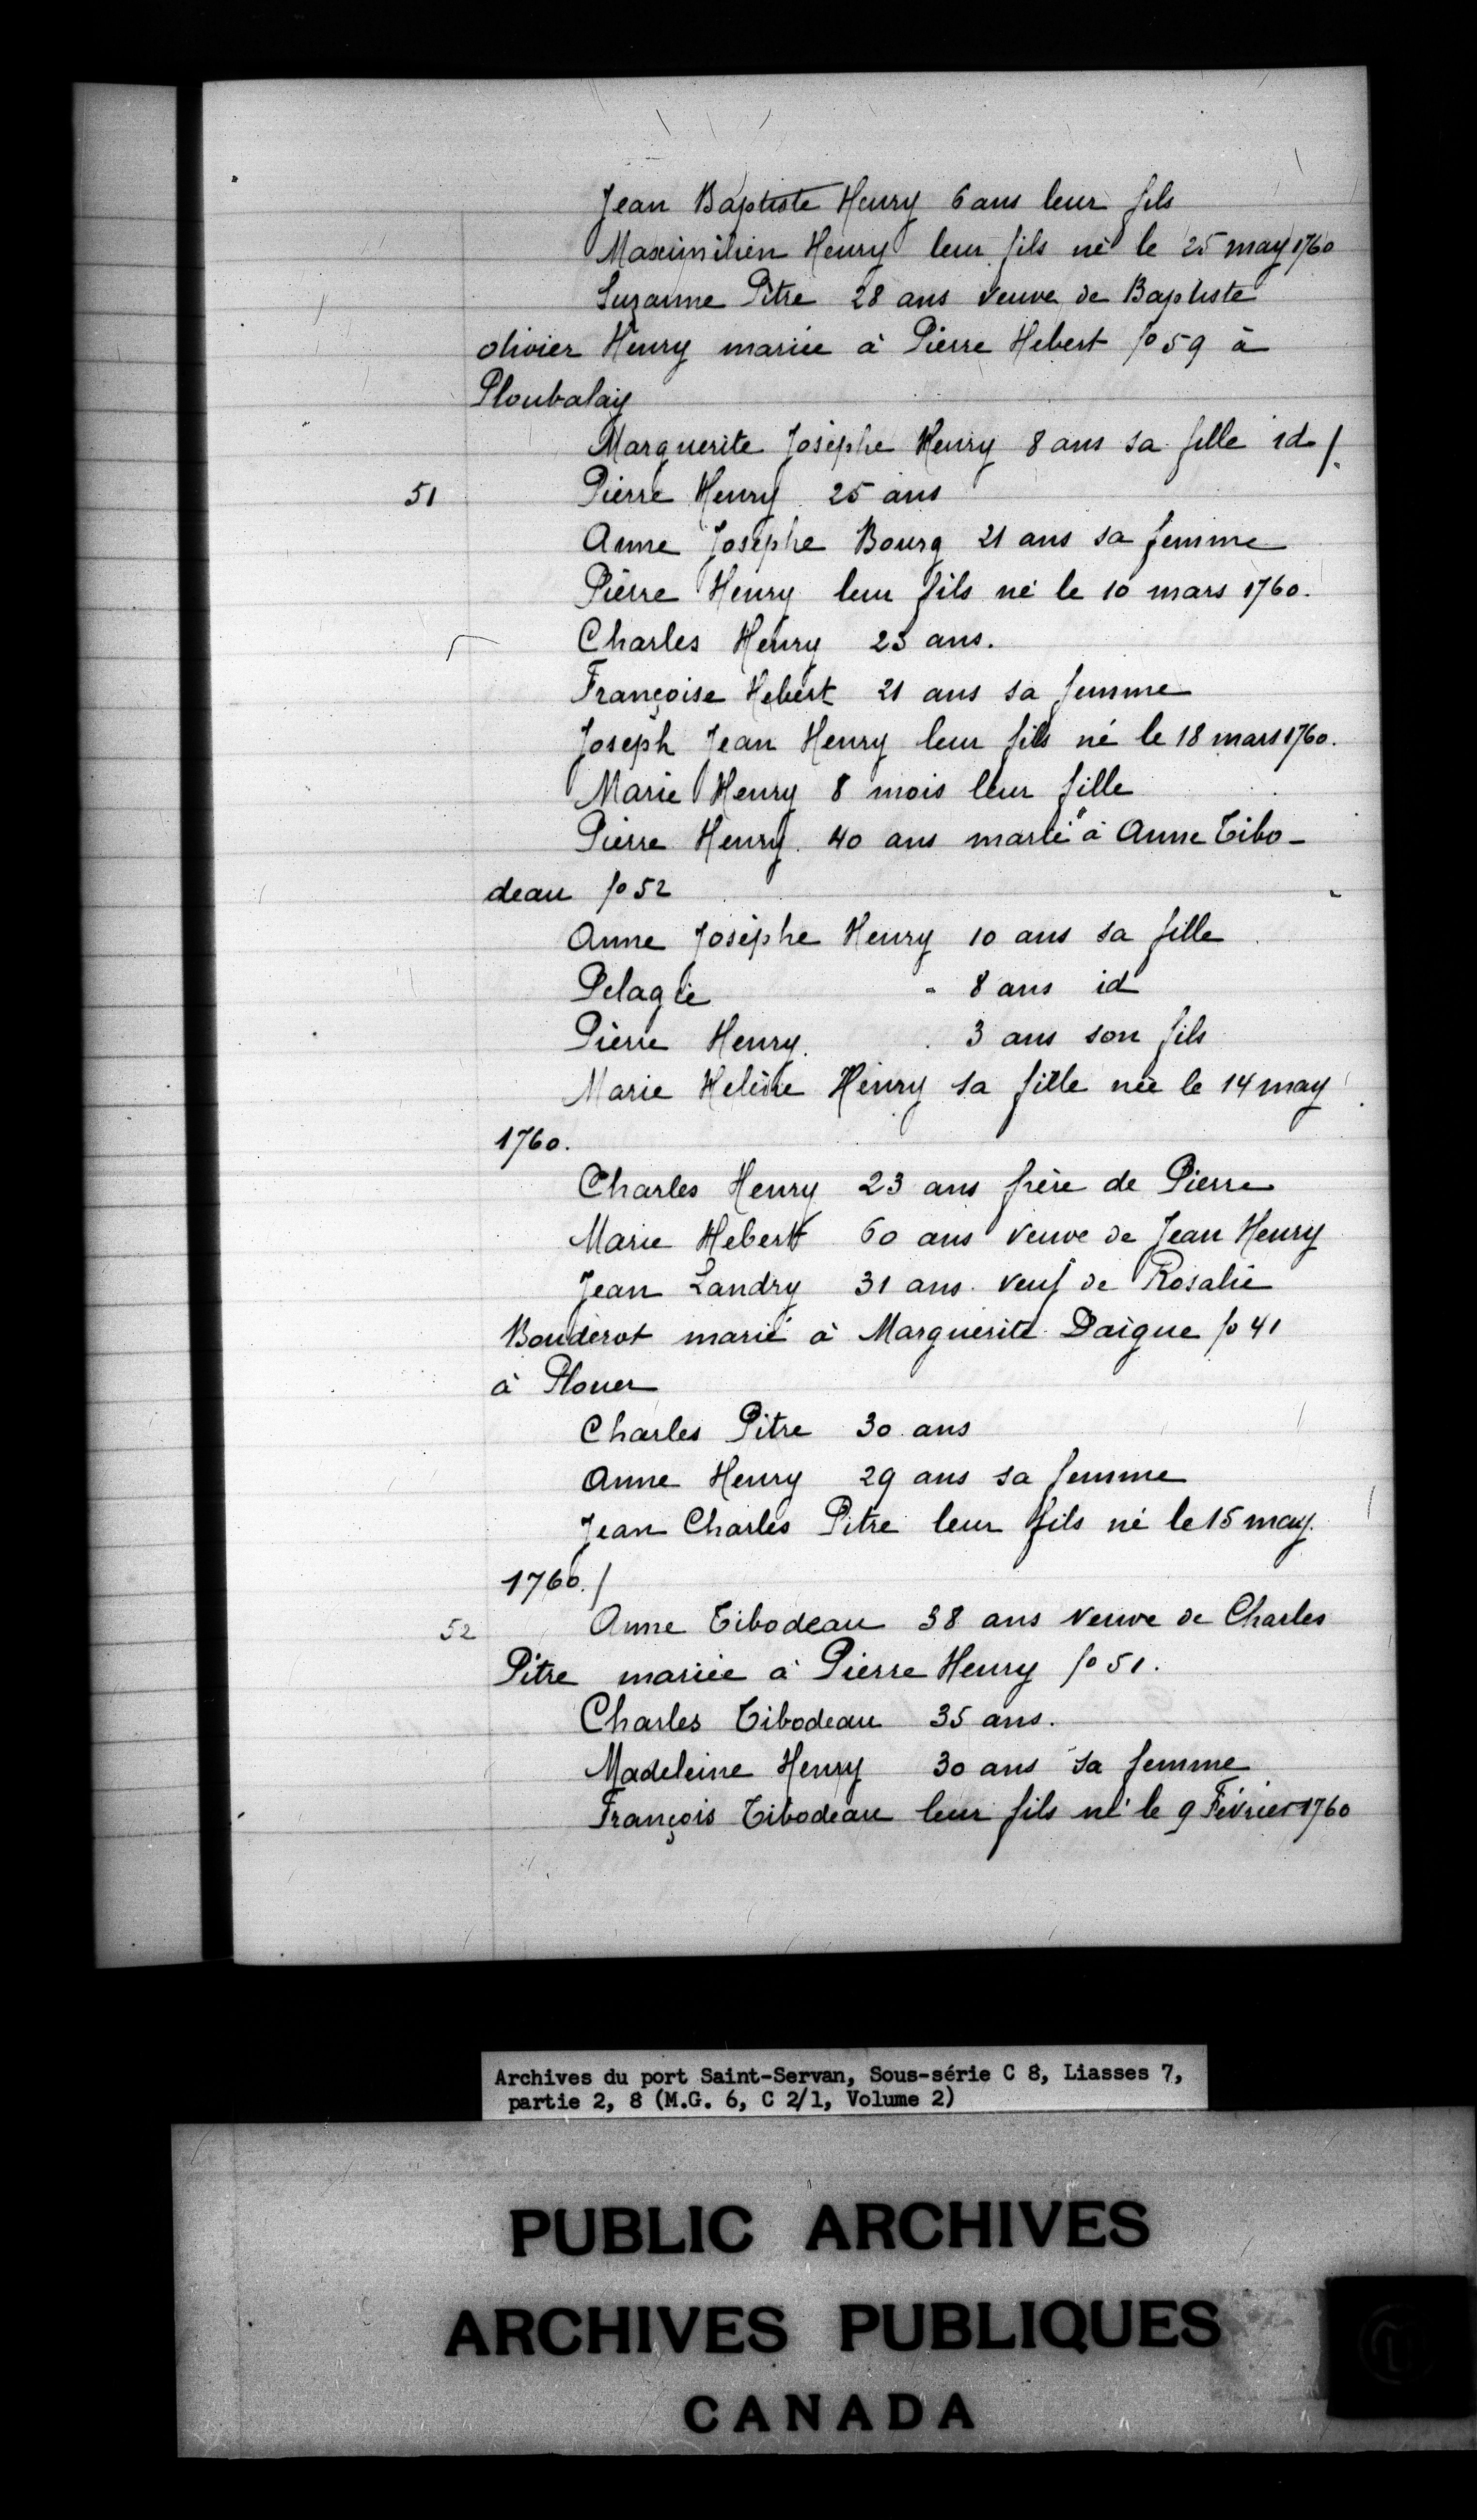 Jean Baptiste Henry 6 ans leur fils
Maximilien Henry leur fils né le 25 may 1760
Suzanne Pitre 28 ans veuve de Baptiste
olivier Henry mariée à Pierre Hebert fo 59 à
Ploubalay
Marguerite Josèphe Henry 8 ans sa fille id /.
51 Pierre Henry 25 ans
Anne Josephe Bourg 21 ans sa femme
Pierre Henry leur fils né le 10 mars 1760.
Charles Henry 23 ans.
Françoise Hebert 21 ans sa femme
Joseph Jean Henry leur fils né le 18 mars 1760.
Marie Henry 8 mois leur fille
Pierre Henry 40 ans marié à Anne Tibo-
deau fo 52
Anne Josèphe Henry 10 ans sa fille
Pelagie " 8 ans id
Pierre Henry. 3 ans son fils
Marie Helène Henry sa fille née le 14 may
1760.
Charles Henry 23 ans frère de Pierre
Marie Hebert 60 ans veuve de Jean Henry
Jean Landry 31 ans veuf de Rosalie
Bouderot marié à Marguerite Daigue fo 41
à Plouer
Charles Pitre 30 ans
Anne Henry 29 ans sa femme
Jean Charles Pitre leur fils né le 15 may.
1760./
52 Anne Tibodeau 38 ans veuve de Charles
Pitre mariée à Pierre Henry fo 51.
Charles Tibodeau 35 ans.
Madeleine Henry 30 ans sa femme
François Tibodeau leur fils né le 9 Février 1760
Archives du port Saint-Servan, Sous-série C 8, Liasses 7,
partie 2, 8 (M.G. 6, C 2/1, Volume 2)
PUBLIC ARCHIVES
ARCHIVES PUBLIQUES
CANADA